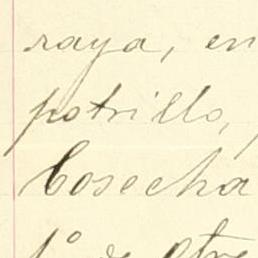 raya, en
potrillo,
Cosecha
1º de otro